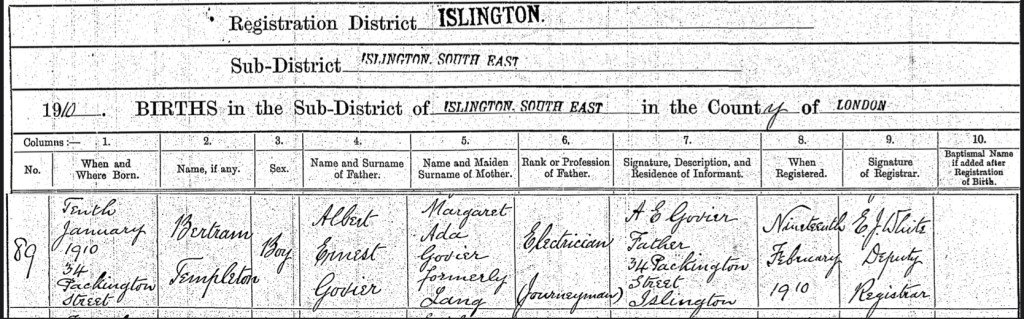 Registration District ISLINGTON.
Sub-District ISLINGTON. SOUTH EAST
1910. BIRTHS in the Sub-District of ISLINGTON. SOUTH EAST in the County of LONDON
Columns :— 1. 2. 3. 4. 5. 6. 7. 8. 9. 10.
No.
When and
Where Born.
Name, if any.
Sex.
Name and Surname
of Father.
Name and Maiden
Surname of Mother.
Rank or Profession
of Father.
Signature, Description, and
Residence of Informant.
When
Registered.
Signature
of Registrar.
Baptismal Name
if added after
Registration
of Birth.
89
Tenth
January
1910
34
Packington
Street
Bertram
Templeton
Boy
Albert
Ernest
Govier
Margaret
Ada
Govier
formerly
Lang
Electrician
(Journeyman)
A E Govier
Father
34 Packington
Street
Islington
Nineteenth
February
1910
E.J. White
Deputy
Registrar